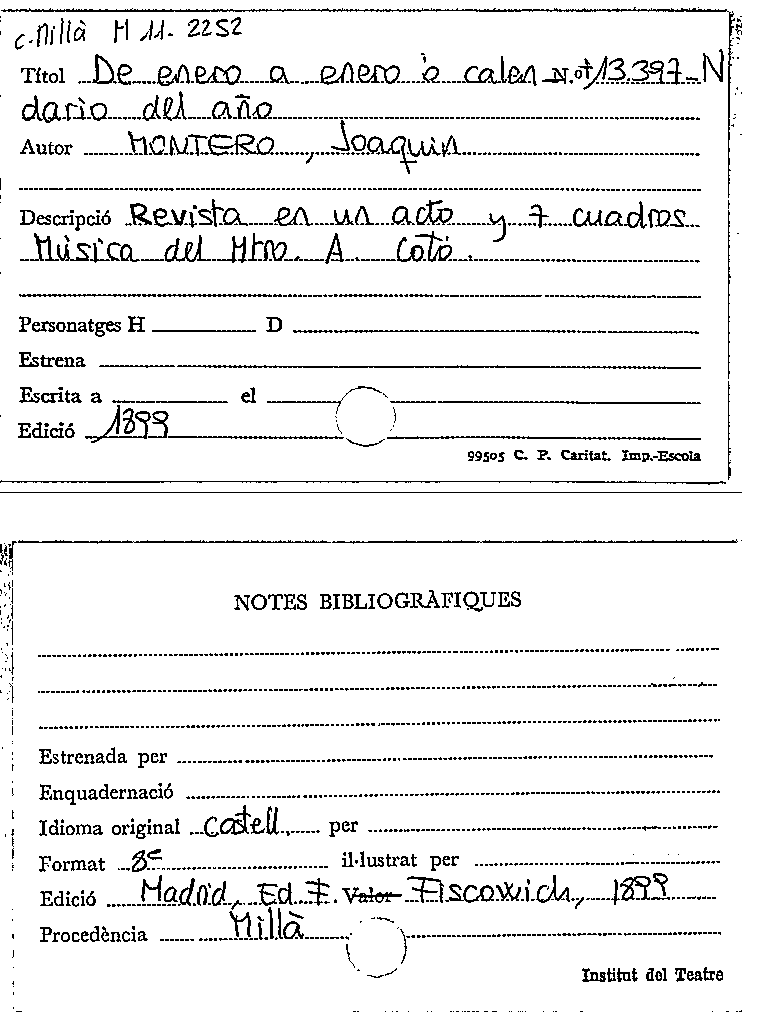 c. Millà M 11. 2252
Títol De enero a enero ò calen N.º† 13.397-N
dario del año
Autor MONTERO, Joaquin
Descripció Revista en un acto y 7 cuadros
Música del Mtro. A. Cotó.
Personatges H D
Estrena
Escrita a el
Edició 1899
99505 C. P. Caritat. Imp.-Escola
NOTES BIBLIOGRÀFIQUES
Estrenada per
Enquadernació
Idioma original Castell. per
Format 8º il·lustrat per
Edició Madrid, Ed. F. Valor Fiscowich, 1899
Procedència Millà
Institut del Teatre